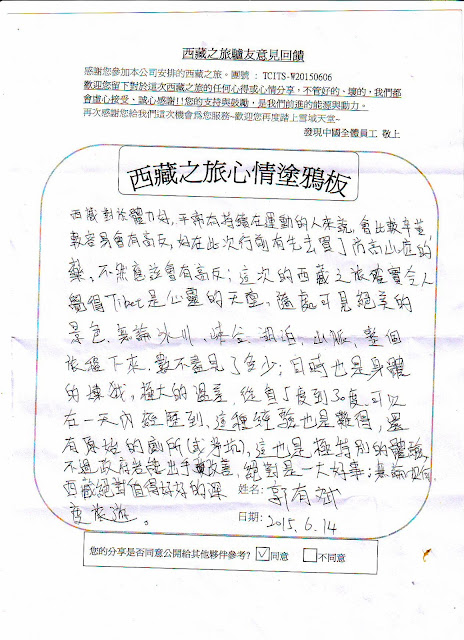 西藏之旅驢友意見回饋
感謝您參加本公司安排的西藏之旅。團號：TCITS-W20150606
歡迎您留下對於這次西藏之旅的任何心得或心情分享，不管好的、壞的，我們都
會虛心接受，誠心感謝!!您的支持與鼓勵，是我們前進的能源與動力。
再次感謝您給我們這次機會為您服務~歡迎您再度踏上雪域天堂~
發現中國全體員工 敬上
西藏之旅心情塗鴉板
西藏對於體力好，平常有持續在運動的人來說，會比較辛苦
較容易會有高反，好在此次行前有先去買了防高山症的
藥，不然應該會有高反；這次的西藏之旅確實令人
覺得Tibet是心靈的天堂，隨處可見絕美的
景色，無論冰川、峽谷、湖泊、山脈，整個
旅程下來，數不盡見了多少；同時也是身體
的 極大的溫差，從負5度到30度，可以
在一天內經歷到，這種經驗也是難得，還
有原始的廁所(或茅坑)，這也是極特別的體驗
不過政府若能出手改善，絕對是一大好事；無論如何，
西藏絕對值得好好的深
度旅遊。
姓名：郭有斌
日期：2015.6.14
您的分享是否同意公開給其他夥伴參考? ☑同意 □不同意